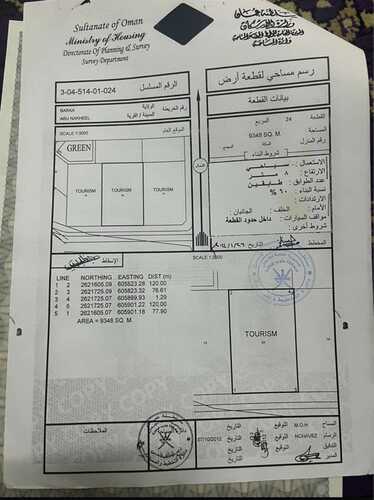 Sultanate of Oman
Ministry of Housing
Directorate of Planning & Survey
Survey Department
سلطنة عمان
وزارة الإسكان
الرقم المسلسل
3-04-514-01-024
رقم الخريطة
الولاية
BARKA
المدينة / القرية
ABU NAKHEEL
SCALE 1:5000
الموقع العام
GREEN
TOURISM
TOURISM
TOURISM
الشمال
رسم مساحي لقطعة أرض
بيانات القطعة
القطعة 24 المربع
المساحة 9348 SQ. M.
رقم المنزل السكة المجمع
شروط البناء
الاستعمال : سياحي
الارتفاع : ٨ متر
عدد الطوابق : طابقين
نسبة البناء : ٦٠ %
الارتدادات :
الأمام : الخلف : الجانبان :
مواقف السيارات : داخل حدود القطعة
شروط أخرى :
المخطط التاريخ
الإسقاط
LINE NORTHING EASTING DIST (m)
1 2 2621605.09 605823.28 120.00
2 3 2621725.09 605823.32 76.61
3 4 2621725.07 605899.93 1.29
4 5 2621725.07 605901.22 120.00
5 1 2621605.07 605901.18 77.90
AREA = 9348 SQ. M.
TOURISM
COPY COPY COPY
الملاحظات
المساح M.O.H التوقيع التاريخ 07/10/2012
الرسام NCHAVEZ التوقيع التاريخ
التدقيق التوقيع التاريخ
المدير التاريخ